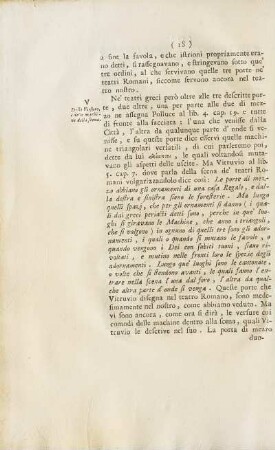 ( 18 )
a fine la favola, e che istrioni propriamente era-
no detti, si rassegnavano, e stringevano sotto que'
tre ordini, al che servivano quelle tre porte ne'
teatri Romani, siccome servono ancora nel no-
stro.
V
Ne' teatri greci però oltre alle tre descritte por-
te, due altre, una per parte alle due di mezzo
no ne assegna Polluce al lib. 4. cap. 19. e tutte
di fronte alla facciata: l'una che venisse dalla
Città, l'altra da qualunque parte d'onde si ve-
nisse, e su queste porte dice esservi quelle machi-
ne triangolari versatili, di cui parleremo poi,
dette da lui le quali voltandosi muta-
vano gli aspetti delle uscite. Ma Vitruvio al lib.
5. cap. 7. dove parla della scena de' teatri Ro-
mani volgarizzandolo dice così: Le porte di mez-
zo abbiano gli ornamenti di una casa Regale, e dal-
la destra e sinistra sieno le foresterie. Ma lungo
quelli spazj, che per gli ornamenti si danno ( i quali
dai greci periacti detti sono, perchè in que' luo-
ghi si giravano le Machine, che avea i triangoli,
che si volgono ) in ognuno di quelli tre sono gli ador-
namenti, i quali o quando si mutano le favole, o
quando vengono i Dei con subiti tuoni, siano ri-
voltati, e mutino nelle fronti loro le spezie degli
adornamenti. Lungo que' luoghi sono le cantonate,
e volte che si stendono avanti, le quali fanno l'en-
trare nella scena l'una dal foro, l'altra da qual-
che altra parte d'onde si venga. Queste porte che
Vitruvio disegna nel teatro Romano, sono mede-
simamente nel nostro, come abbiamo veduto. Ma
vi sono ancora, come ora si dirà, le versure cui
comoda delle machine dentro alla scena, quali Vi-
truvio le descrive nel suo. La porta di mezzo
duo-